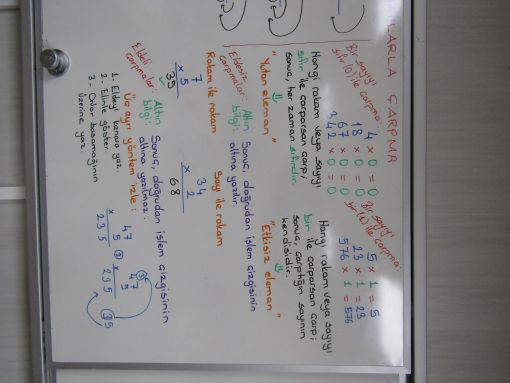 LARLA ÇARPMA
Bir sayıyı
sıfır (0) ile çarpma:
4 × 0 = 0
18 × 0 = 0
67 × 0 = 0
342 × 0 = 0
Hangi rakam veya sayıyı
sıfır ile çarparsan çarp;
sonuç, her zaman sıfırdır.
"Yutan eleman"
Bir sayıyı
bir (1) ile çarpma:
5 × 1 = 5
23 × 1 = 23
576 × 1 = 576
Hangi rakam veya sayıyı
bir ile çarparsan çarp;
sonuç, çarptığın sayının
kendisidir.
"Etkisiz eleman"
Eldesiz Altın Sonuç, doğrudan işlem çizgisinin
çarpmalar: bilgi: altına yazılır.
Rakam ile rakam
7
× 5
35
Sayı ile rakam
34
× 2
68
Eldeli Altın Sonuç, doğrudan işlem çizgisinin
çarpmalar: bilgi: altına yazılmaz.
"Üç ayrı yöntem izle:
1. Eldeyi kenara yaz.
2. Elini göster.
3 - Onlar basamağının
üzerine yaz.
47
× 5 ③
235
③
47
× 5
235
③5